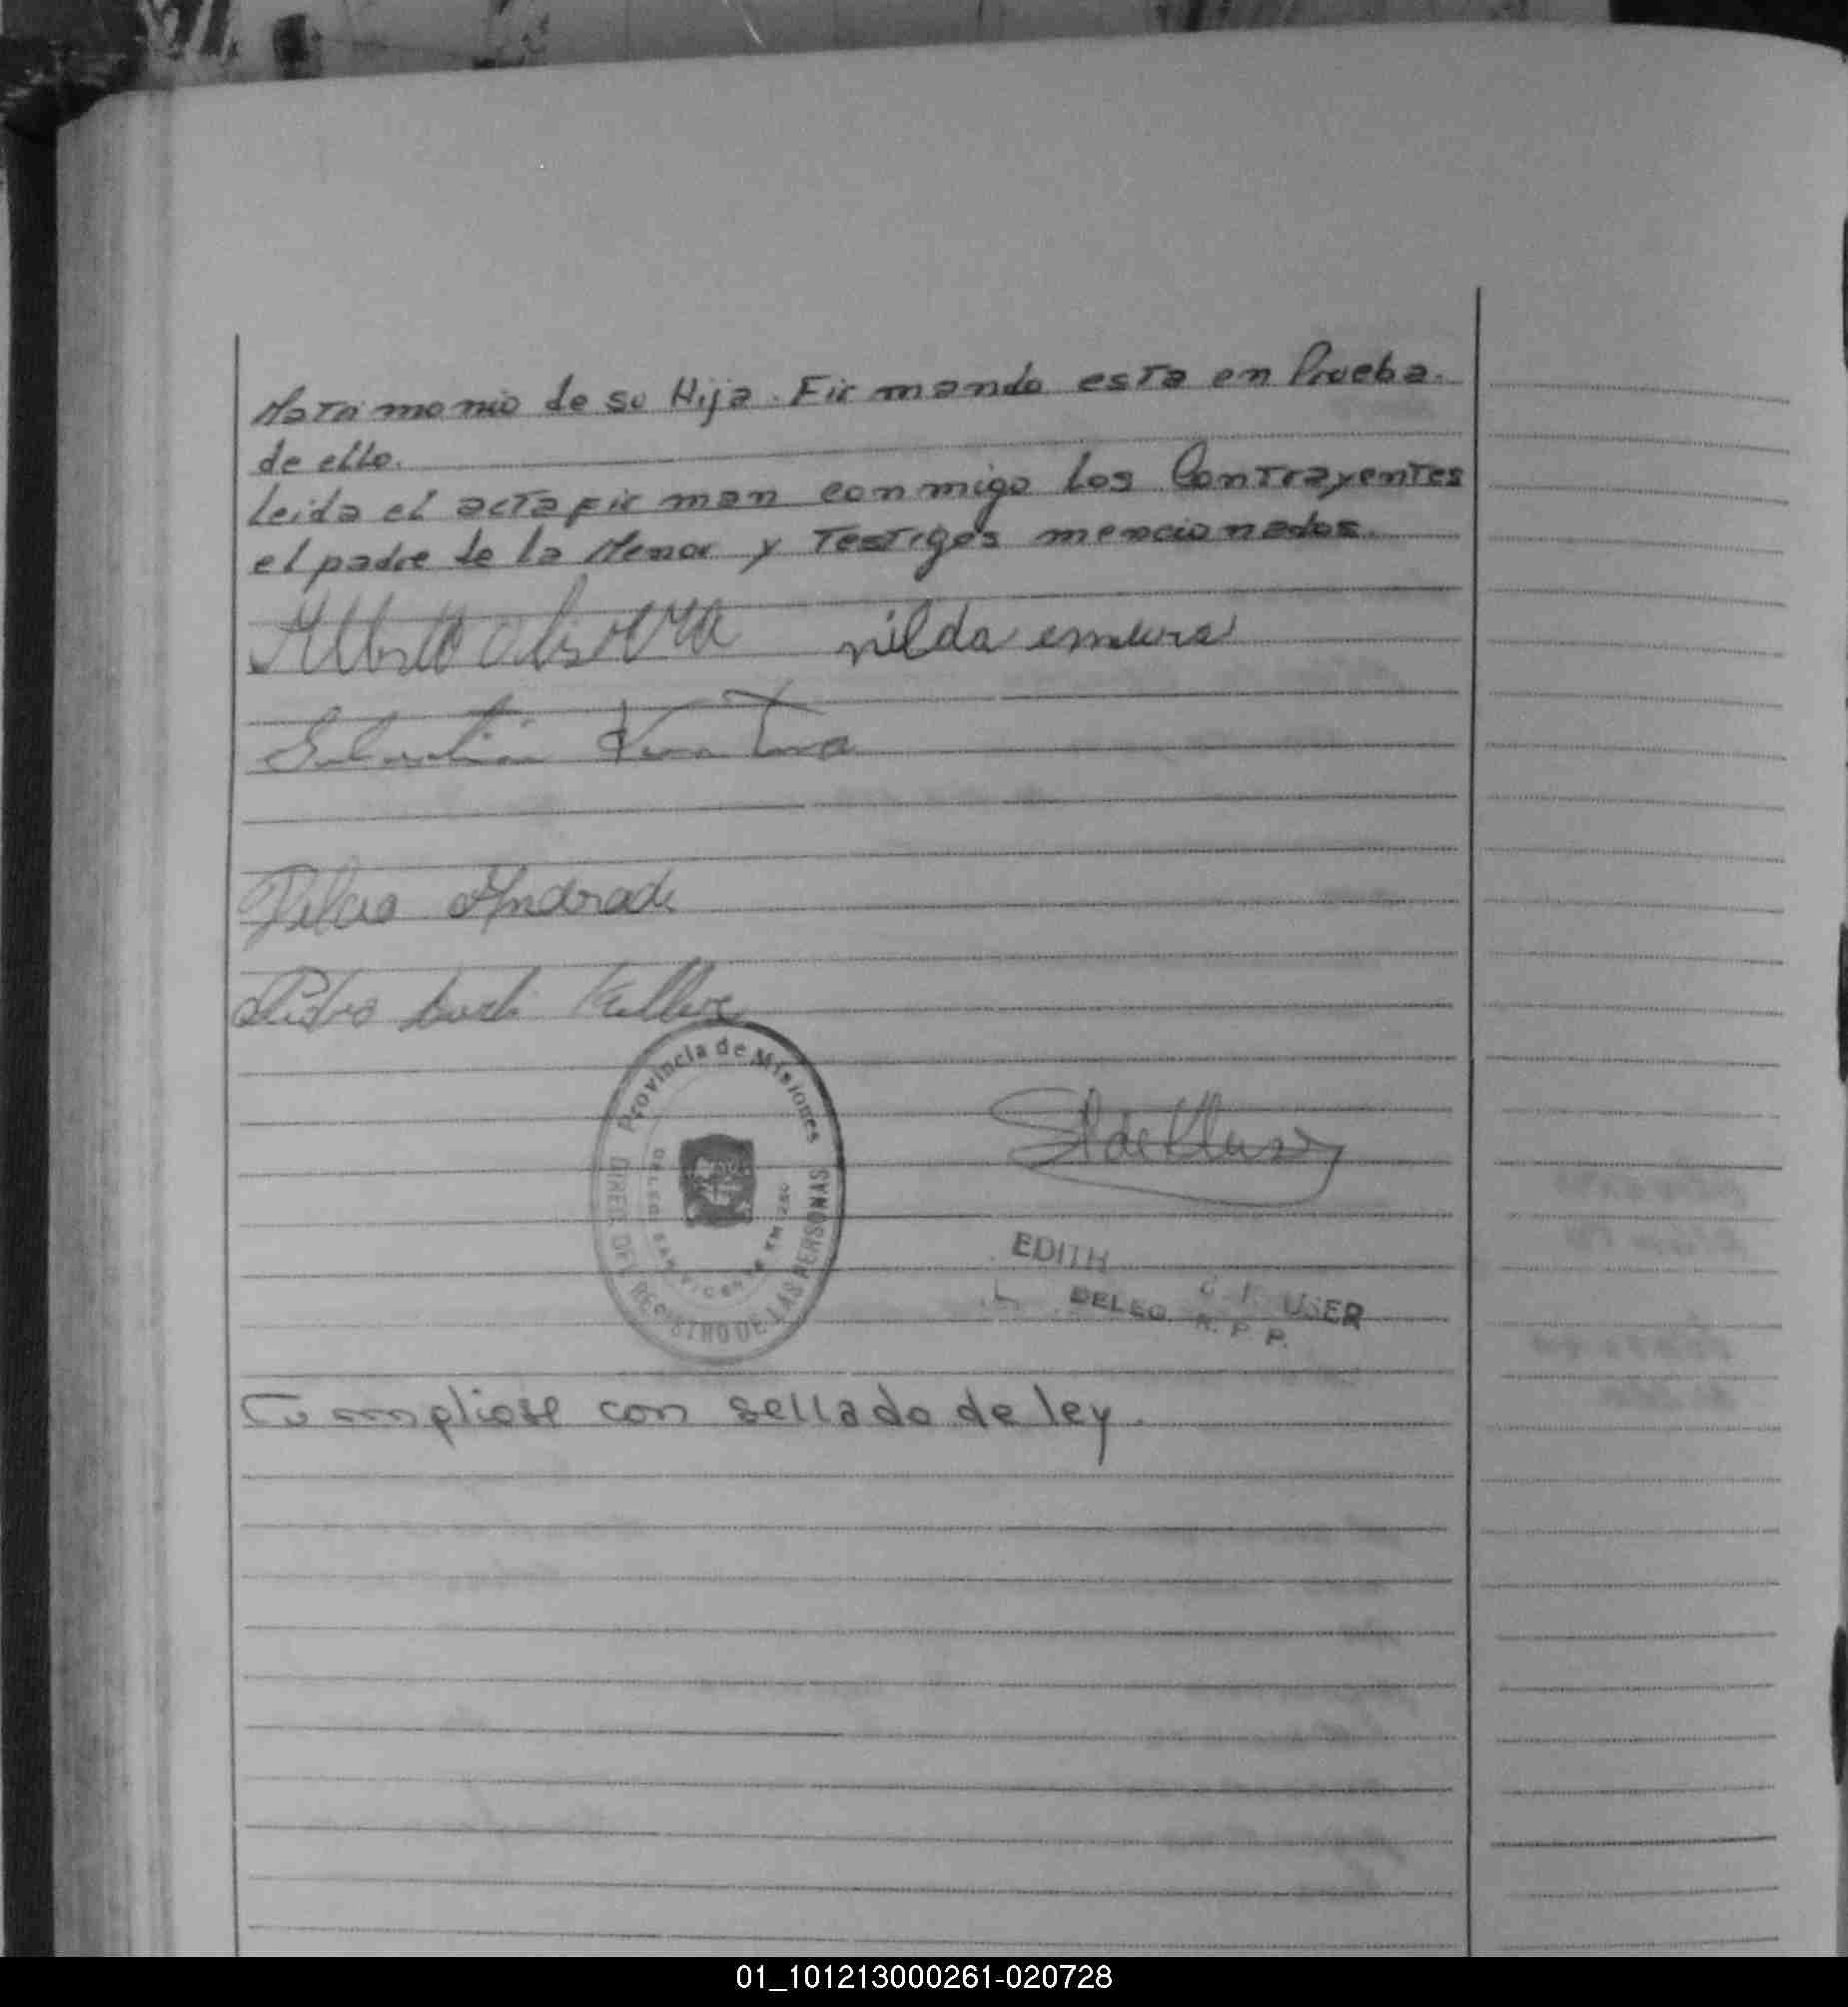 Matrimonio de su Hija. Firmando esta en Prueba.
de ello.
Leida el acta firman conmigo los Contrayentes
el padre de la Menor y Testigos mencionados.
Alberto nilda
Sebastián
Andrade
Pedro
Provincia de Misiones
DIREC. DEL REGISTRO DE LAS PERSONAS
DELEG. SAN VICENTE KM 250
EDITH
USER
DELEG. R. P. P.
Cumpliose con sellado de ley.
01_101213000261-020728